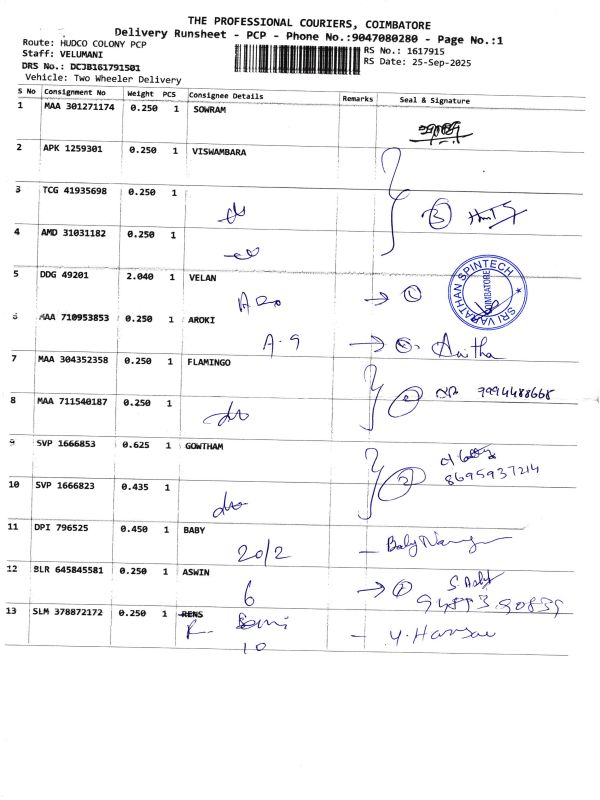 THE PROFESSIONAL COURIERS, COIMBATORE
Delivery Runsheet - PCP - Phone No.:9047080280 - Page No.:1
Route: HUDCO COLONY PCP
RS No.: 1617915
Staff: VELUMANI
RS Date: 25-Sep-2025
DRS No.: DCJB161791501
Vehicle: Two Wheeler Delivery
S No Consignment No Weight PCS Consignee Details Remarks Seal & Signature
1 MAA 301271174 0.250 1 SOWRAM
2 APK 1259301 0.250 1 VISWAMBARA
3 TCG 41935698 0.250 1
3
4 AMD 31031182 0.250 1
5 DDG 49201 2.040 1 VELAN
SRI VARATHAN SPINTECH
COIMBATORE
6 MAA 710953853 0.250 1 AROKI
A.9 Anitha
7 MAA 304352358 0.250 1 FLAMINGO
7994488668
8 MAA 711540187 0.250 1
9 SVP 1666853 0.625 1 GOWTHAM
8695937214
10 SVP 1666823 0.435 1
11 DPI 796525 0.450 1 BABY
20/2
12 BLR 645845581 0.250 1 ASWIN
6
13 SLM 378872172 0.250 1 RENS
10